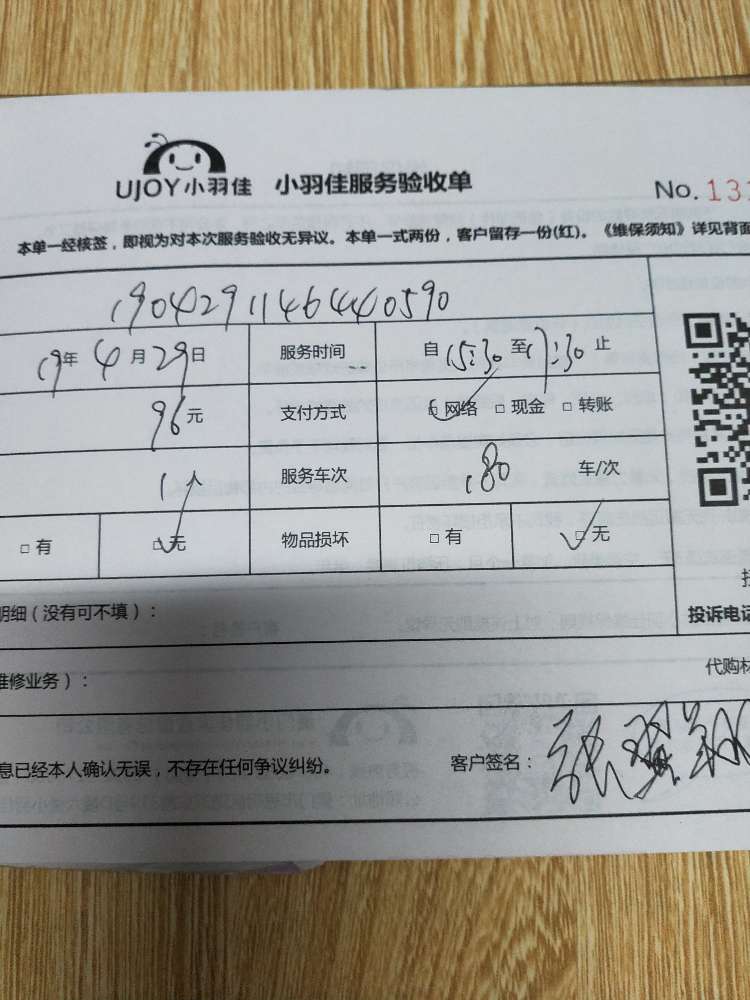 UJOY小羽佳 小羽佳服务验收单
No. 131
本单一经核签，即视为对本次服务验收无异议。本单一式两份，客户留存一份(红)。《维保须知》详见背面
1904291146440590
19年4月29日 服务时间 自15:30至17:30止
96元 支付方式 □网络 □现金 □转账
1人 服务车次 180 车/次
□有 □无 物品损坏 □有 □无
明细（没有可不填）：
投诉电话
维修业务）：
代购材
息已经本人确认无误，不存在任何争议纠纷。 客户签名：